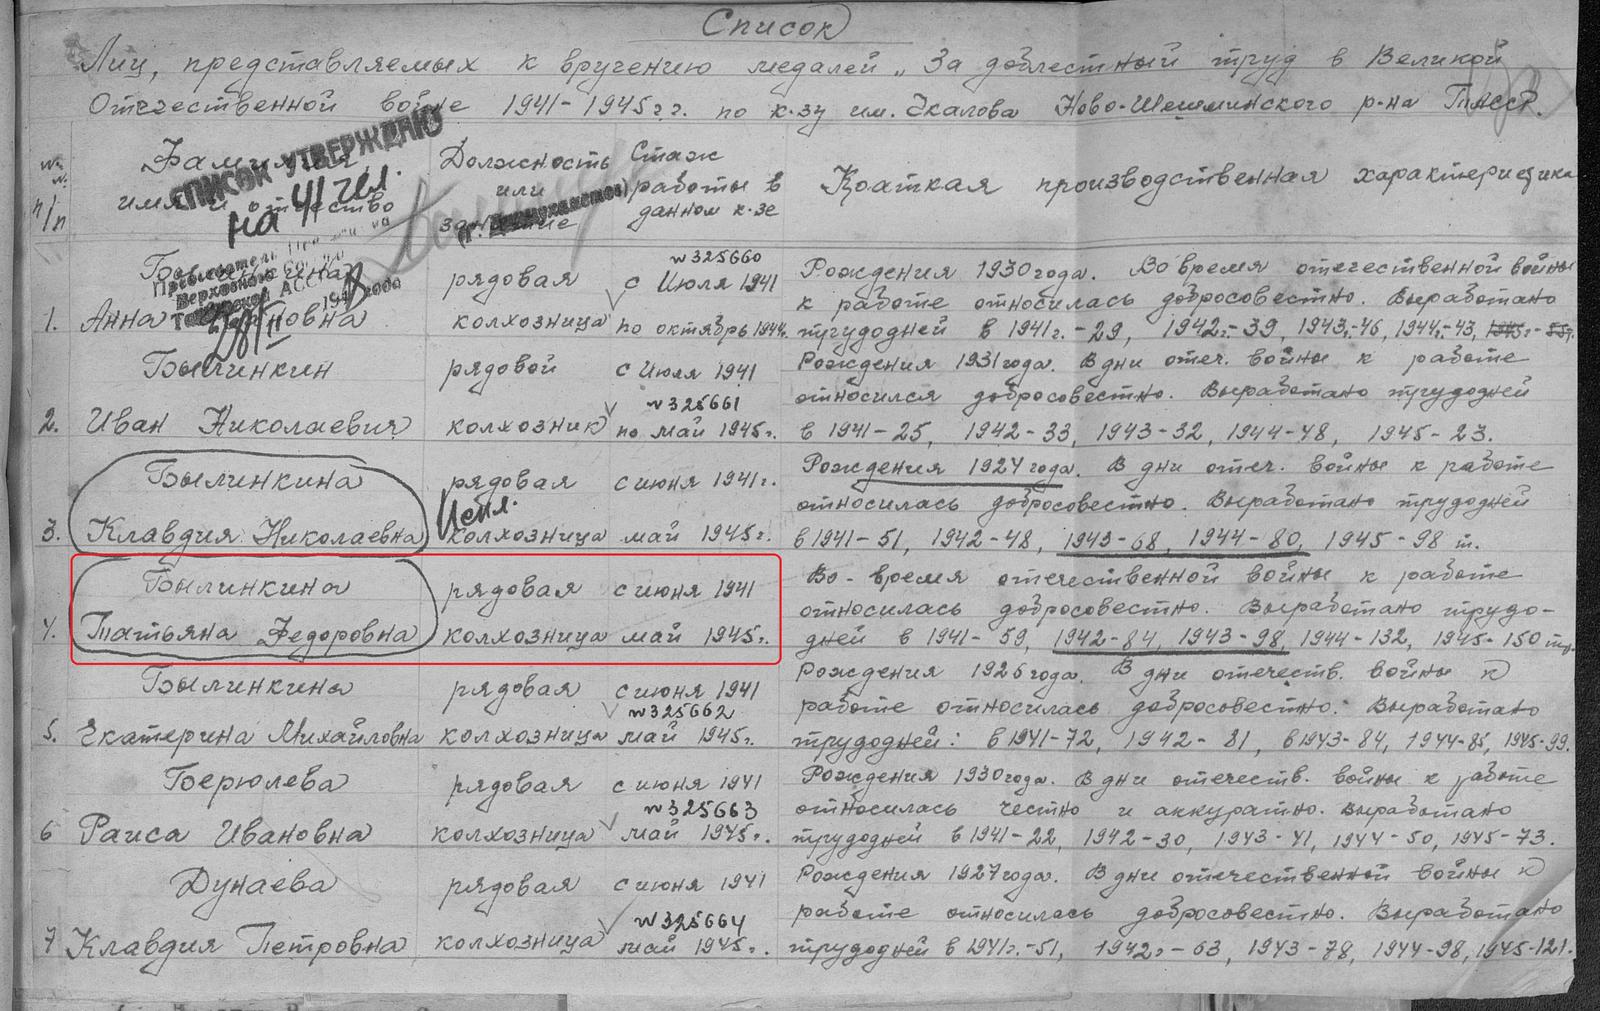 Список
Лиц, представляемых к вручению медалей „За доблестный труд в Великой
Отечественной войне 1941-1945г.г. по к-зу им. Чкалова Ново-Шешминского р-на ТАССР.
№ №
п/п
Фамилия
имя и отчество
Должность
или
занятие
Стаж
работы в
данном к-зе
Краткая производственная характеристика
СПИСОК УТВЕРЖДАЮ
на 4 чел.
Председатель Президиума
Верховного Совета
Татарской АССР
194 года
1. Былинкина
Анна
рядовая
колхозница
№325660
с Июля 1941
по октябрь 1944г.
Рождения 1930 года. Во время отечественной войны
к работе относилась добросовестно. Выработано
трудодней в 1941г.-29, 1942г.-39, 1943г.-46, 1944г.-43,
2. Былинкин
Иван Николаевич
рядовой
колхозник
с Июля 1941
№325661
по май 1945г.
Рождения 1931 года. В дни отеч. войны к работе
относился добросовестно. Выработано трудодней
в 1941-25, 1942-33, 1943-32, 1944-48, 1945-23.
3. Былинкина
Клавдия Николаевна
рядовая
Исп.
колхозница
с июня 1941г.
май 1945г.
Рождения 1924 года. В дни отеч. войны к работе
относилась добросовестно. Выработано трудодней
в 1941-51, 1942-48, 1943-68, 1944-80, 1945-98 т.
4. Былинкина
Татьяна Федоровна
рядовая
колхозница
с июня 1941
май 1945г.
Во-время отечественной войны к работе
относилась добросовестно. Выработано трудо-
дней в 1941-59, 1942-84, 1943-98, 1944-132, 1945-150 тр.
5. Былинкина
Екатерина Михайловна
рядовая
колхозница
с июня 1941
№325662
май 1945г.
Рождения 1926 года. В дни отечеств. войны к
работе относилась добросовестно. Выработано
трудодней: в 1941-72, 1942-81, в 1943-84, 1944-85, 1945-99.
6 Берюлева
Раиса Ивановна
рядовая
колхозница
с июня 1941
№325663
май 1945г.
Рождения 1930 года. В дни отечеств. войны к работе
относилась честно и аккуратно. Выработано
трудодней в 1941-22, 1942-30, 1943-41, 1944-50, 1945-73.
7 Дунаева
Клавдия Петровна
рядовая
колхозница
с июня 1941
№325664
май 1945г.
Рождения 1927 года. В дни отечественной войны к
работе относилась добросовестно. Выработано
трудодней в 1941г.-51, 1942г-63, 1943-78, 1944-98, 1945-121.